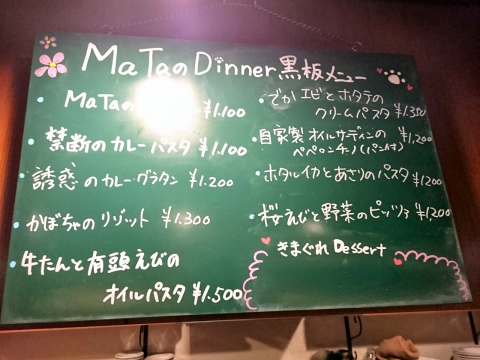 MaTaのDinner黒板メニュー
・MaTaの ¥1.100
・禁断のカレーパスタ ¥1.100
・誘惑のカレーグラタン ¥1.200
・かぼちゃのリゾット ¥1.300
・牛たんと有頭えびの
オイルパスタ ¥1.500
・でかエビとホタテの
クリームパスタ ¥1.350
・自家製オイルサーディンの
ペペロンチーノ(パン付) ¥1,200
・ホタルイカとあさりのパスタ ¥1200
・桜えびと野菜のピッツァ ¥1200
きまぐれ Dessert